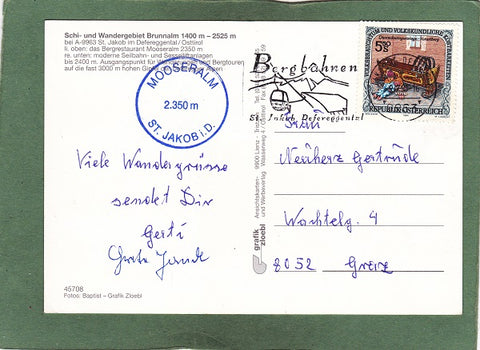 Schi- und Wandergebiet Brunnalm 1400 m – 2525 m
bei A-9963 St. Jakob im Defereggental / Osttirol
li. oben: das Bergrestaurant Mooseralm 2350 m
re. unten: moderne Seilbahn- und Sesselliftanlagen
bis 2400 m. Ausgangspunkt für Wander- und Bergtouren
auf die fast 3000 m hohen
MOOSERALM
2.350 m
ST. JAKOB i.D.
Viele Wandergrüsse
sendet Dir
Gerti
45708
Fotos: Baptist – Grafik Zloebl
grafik
zloebl
Ansichtskarten- und Werbeverlag
9900 Lienz
Bergbahnen
St. Jakob Defereggental
REPUBLIK ÖSTERREICH
Frau
Neuherz Gertrude
Wachtelg. 4
8052 Graz